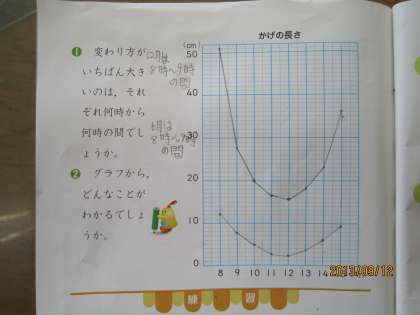 かげの長さ
(cm)
50
40
30
20
10
0
8 9 10 11 12 13 14
❶ 変わり方が
いちばん大き
いのは，それ
ぞれ何時から
何時の間でし
ょうか。
12月は
8時〜9時
の間
8時〜9時
の間
❷ グラフから，
どんなことが
わかるでしょ
うか。
練習
2013/09/12